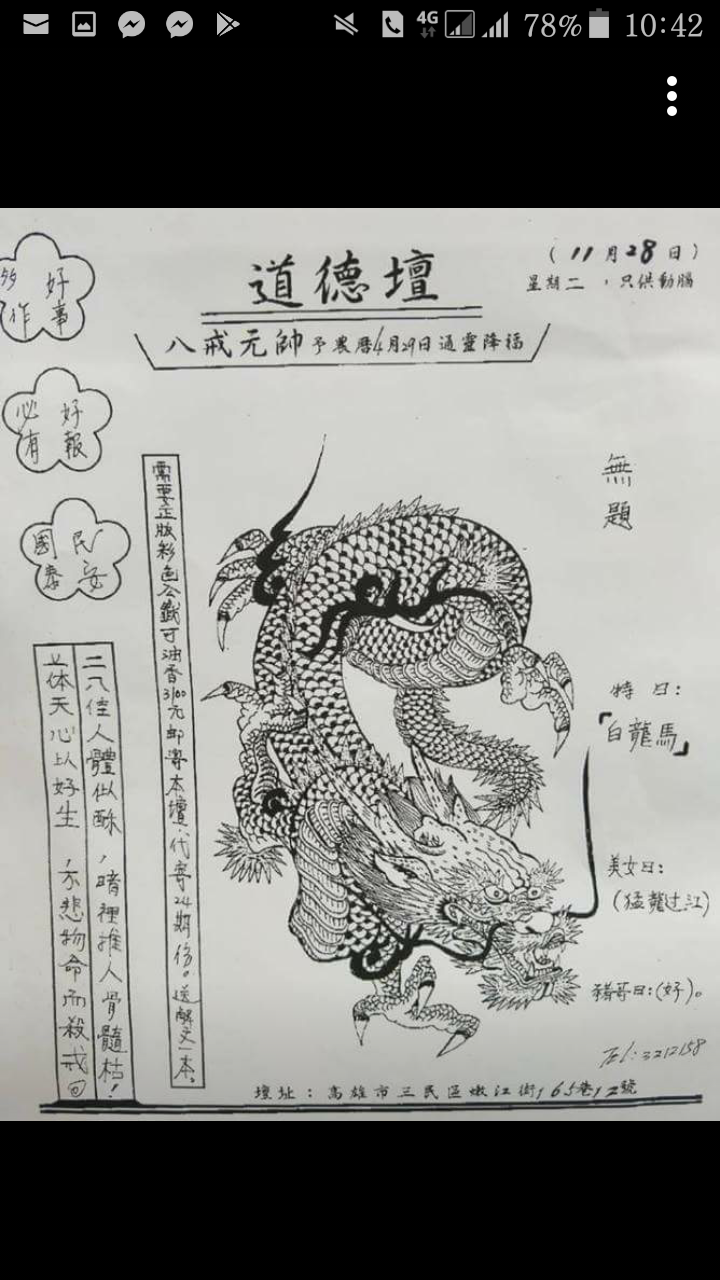 4G 78% 10:42
道德壇
(11月28日)
星期二，只供動腦
八戒元帥予農曆4月29日通靈降福
好事
多作
好報
必有
民安
國泰
無題
特曰：
「白龍馬」
美女曰：
(猛龍过江)
豬哥曰：(好)。
Tel：3212158
需要正版彩色公鐵可油香3100元郵寄本壇，代寄24期份。送解文一本。
二八佳人體似酥，暗裡推人骨髓枯！
体天心以好生，方悲物命而殺戒
壇址：高雄市三民區嫩江街165巷12號